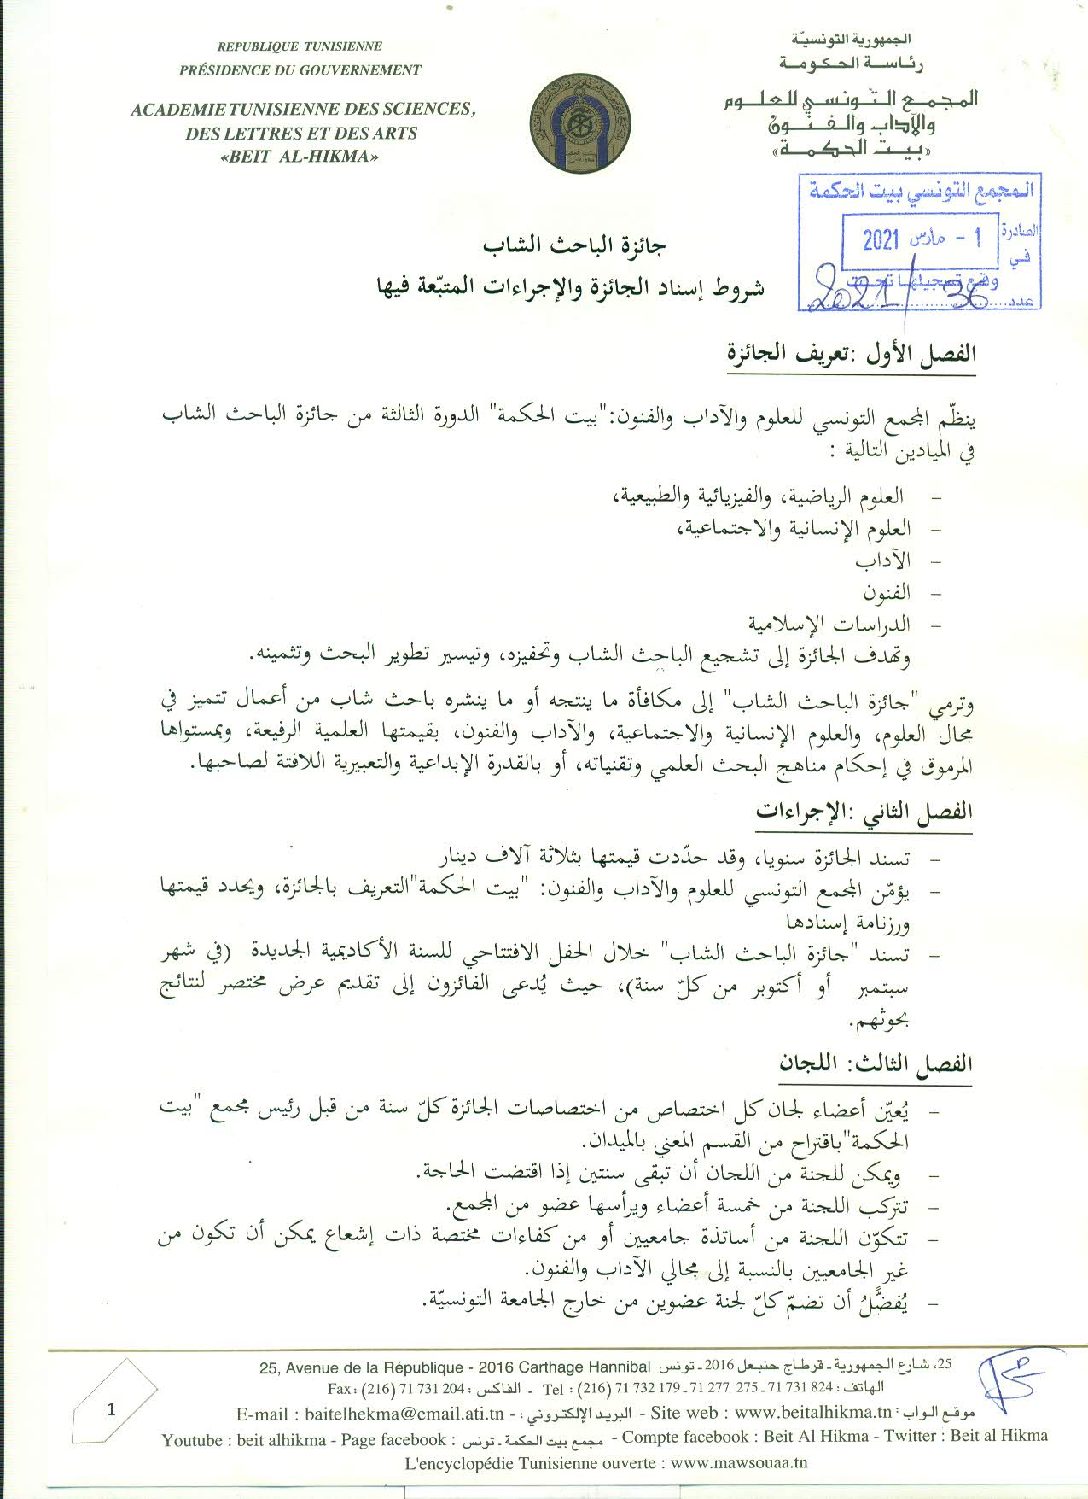 REPUBLIQUE TUNISIENNE
PRÉSIDENCE DU GOUVERNEMENT
ACADEMIE TUNISIENNE DES SCIENCES,
DES LETTRES ET DES ARTS
«BEIT AL-HIKMA»
الجمهورية التونسيّة
رئاسة الحكومة
المجمع التونسي للعلوم
والآداب والفنون
«بيت الحكمة»
المجمع التونسي بيت الحكمة
الصادرة
1 - مارس 2021
في
وقع تسجيلها تحت
عدد 36 / 2021
جائزة الباحث الشاب
شروط إسناد الجائزة والإجراءات المتبّعة فيها
الفصل الأول :تعريف الجائزة
ينظّم المجمع التونسي للعلوم والآداب والفنون:"بيت الحكمة" الدورة الثالثة من جائزة الباحث الشاب
في الميادين التالية :
- العلوم الرياضية، والفيزيائية والطبيعية،
- العلوم الإنسانية والاجتماعية،
- الآداب
- الفنون
- الدراسات الإسلامية
وتهدف الجائزة إلى تشجيع الباحث الشاب وتحفيزه، وتيسير تطوير البحث وتثمينه.
وترمي "جائزة الباحث الشاب" إلى مكافأة ما ينتجه أو ما ينشره باحث شاب من أعمال تتميز في
مجال العلوم، والعلوم الإنسانية والاجتماعية، والآداب والفنون، بقيمتها العلمية الرفيعة، وبمستواها
المرموق في إحكام مناهج البحث العلمي وتقنياته، أو بالقدرة الإبداعية والتعبيرية اللافتة لصاحبها.
الفصل الثاني :الإجراءات
- تسند الجائزة سنويا، وقد حدّدت قيمتها بثلاثة آلاف دينار
- يؤمّن المجمع التونسي للعلوم والآداب والفنون: "بيت الحكمة"التعريف بالجائزة، ويحدد قيمتها
ورزنامة إسنادها
- تسند "جائزة الباحث الشاب" خلال الحفل الافتتاحي للسنة الأكاديمية الجديدة (في شهر
سبتمبر أو أكتوبر من كلّ سنة)، حيث يُدعى الفائزون إلى تقديم عرض مختصر لنتائج
بحوثهم.
الفصل الثالث: اللجان
- يُعيّن أعضاء لجان كل اختصاص من اختصاصات الجائزة كلّ سنة من قبل رئيس مجمع "بيت
الحكمة"باقتراح من القسم المعني بالميدان.
- ويمكن للجنة من اللجان أن تبقى سنتين إذا اقتضت الحاجة.
- تتركب اللجنة من خمسة أعضاء ويرأسها عضو من المجمع.
- تتكوّن اللجنة من أساتذة جامعيين أو من كفاءات مختصة ذات إشعاع يمكن أن تكون من
غير الجامعيين بالنسبة إلى مجالي الآداب والفنون.
- يُفضَّلُ أن تضمّ كلّ لجنة عضوين من خارج الجامعة التونسيّة.
25, Avenue de la République - 2016 Carthage Hannibal 25، شارع الجمهورية - قرطاج حنبعل 2016 - تونس
Fax: (216) 71 731 204 : الفاكس - Tel : (216) 71 732 179 - 71 277 275 - 71 731 824 : الهاتف
E-mail : baitelhekma@email.ati.tn - : البريد الإلكتروني - Site web : www.beitalhikma.tn : موقع الواب
Youtube : beit alhikma - Page facebook : مجمع بيت الحكمة - تونس - Compte facebook : Beit Al Hikma - Twitter : Beit al Hikma
L'encyclopédie Tunisienne ouverte : www.mawsouaa.tn
1